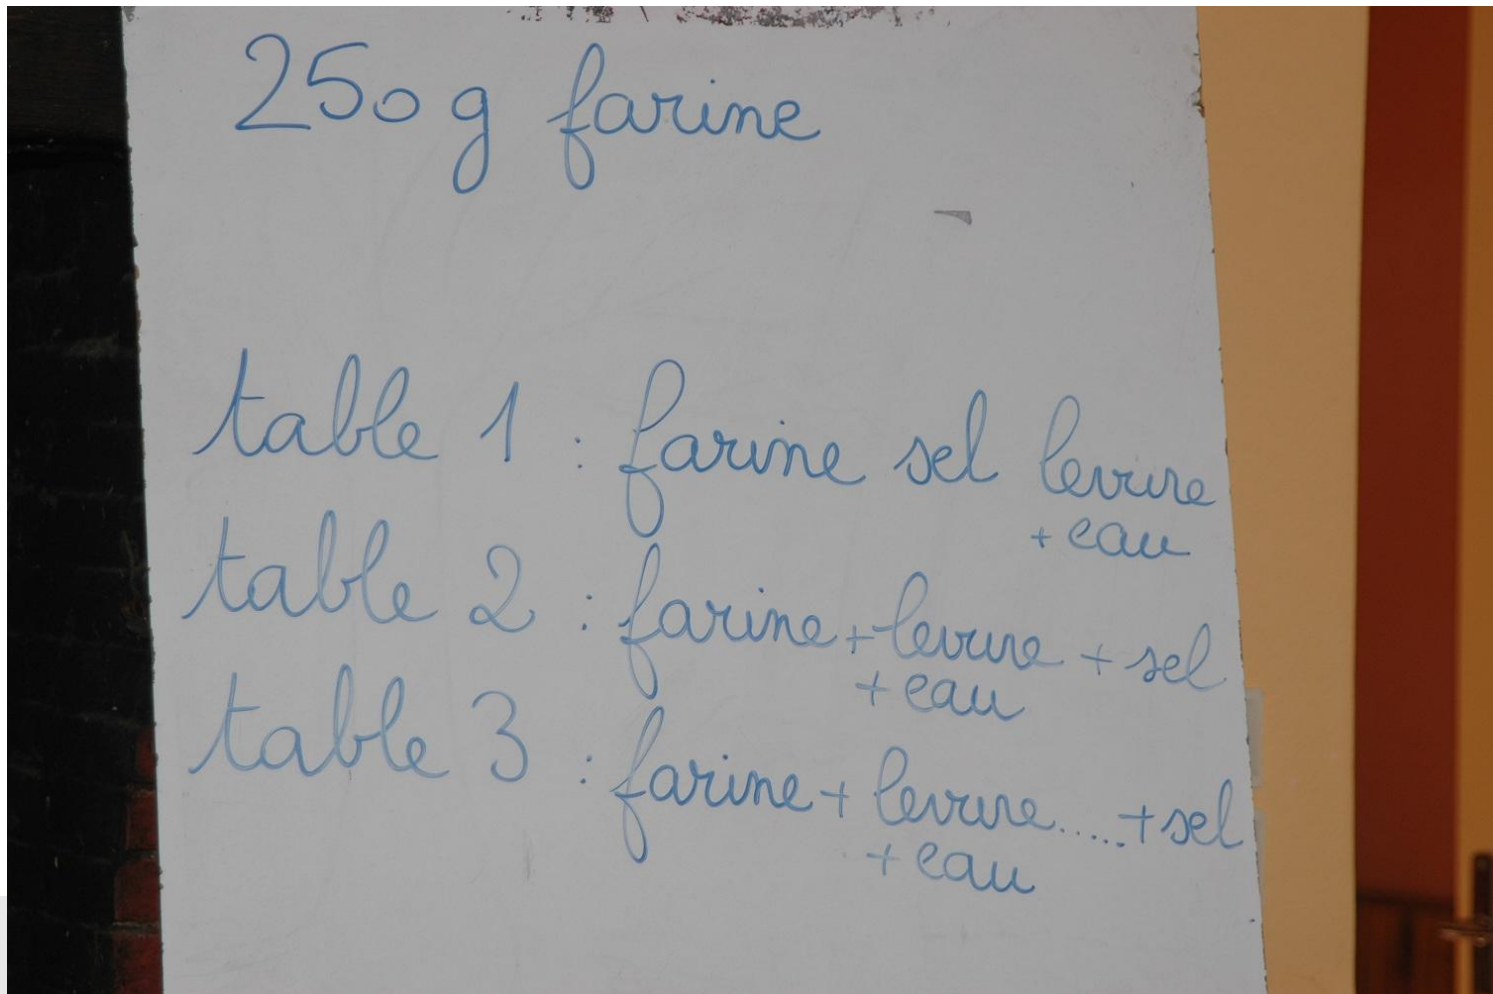 250 g farine
table 1 : farine sel levure
+ eau
table 2 : farine + levure + sel
+ eau
table 3 : farine + levure ..... + sel
+ eau